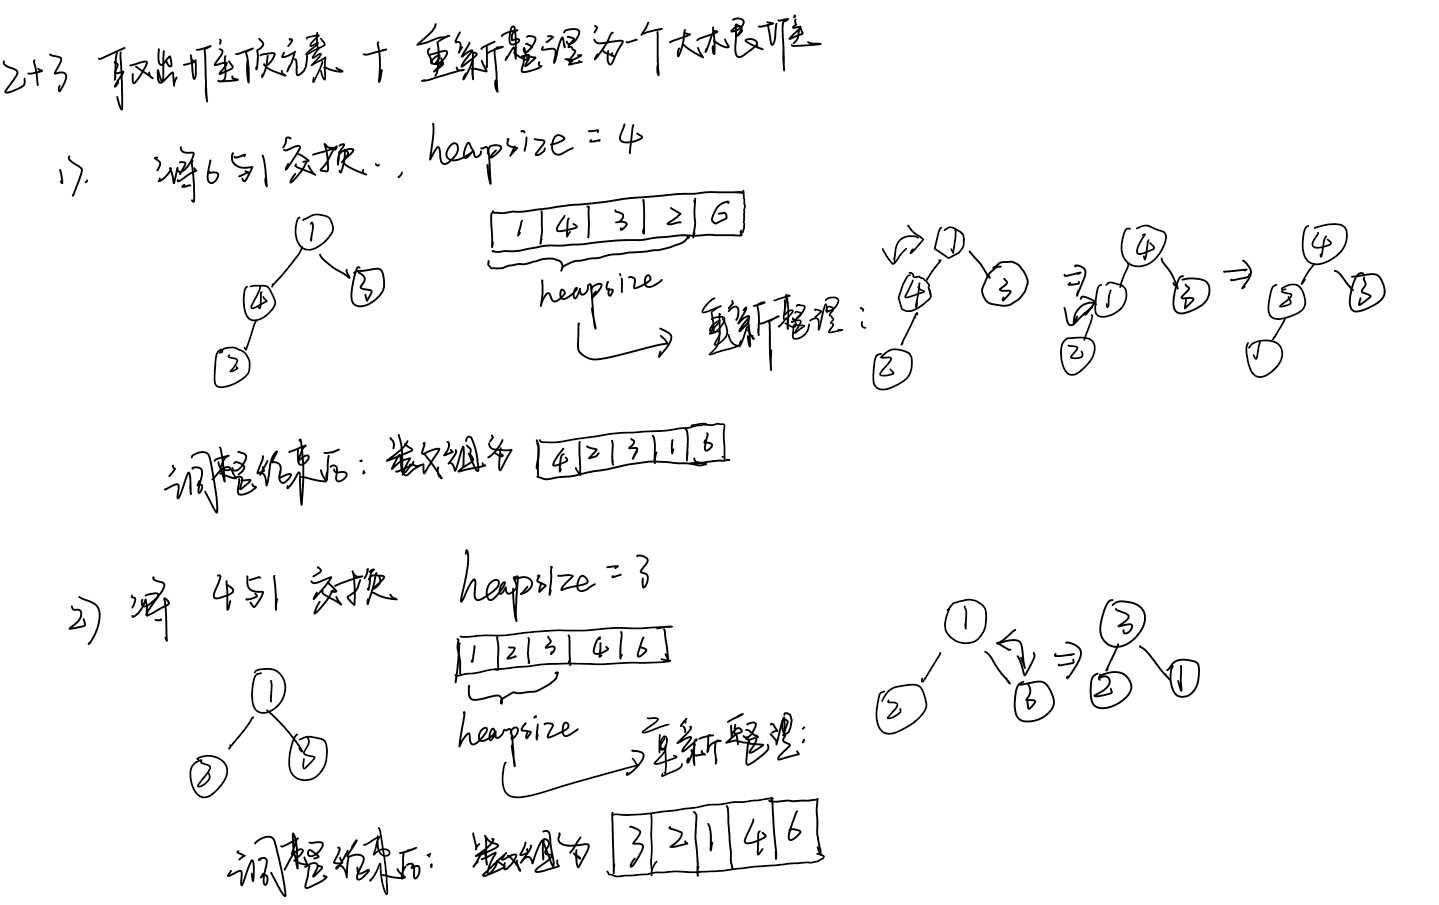 2+3 取出堆顶元素 + 重新整理为一个大根堆
1). 将6与1交换., heapsize = 4
1 4 3 2 6
heapsize
1
4 3
2
重新整理:
1
4 3
2
⇒
4
1 3
2
⇒
4
2 3
1
调整结束后: 数组为 4 2 3 1 6
2) 将 4与1 交换 heapsize = 3
1 2 3 4 6
heapsize
1
2 3
重新整理:
1
2 3
⇒
3
2 1
调整结束后: 数组为 3 2 1 4 6